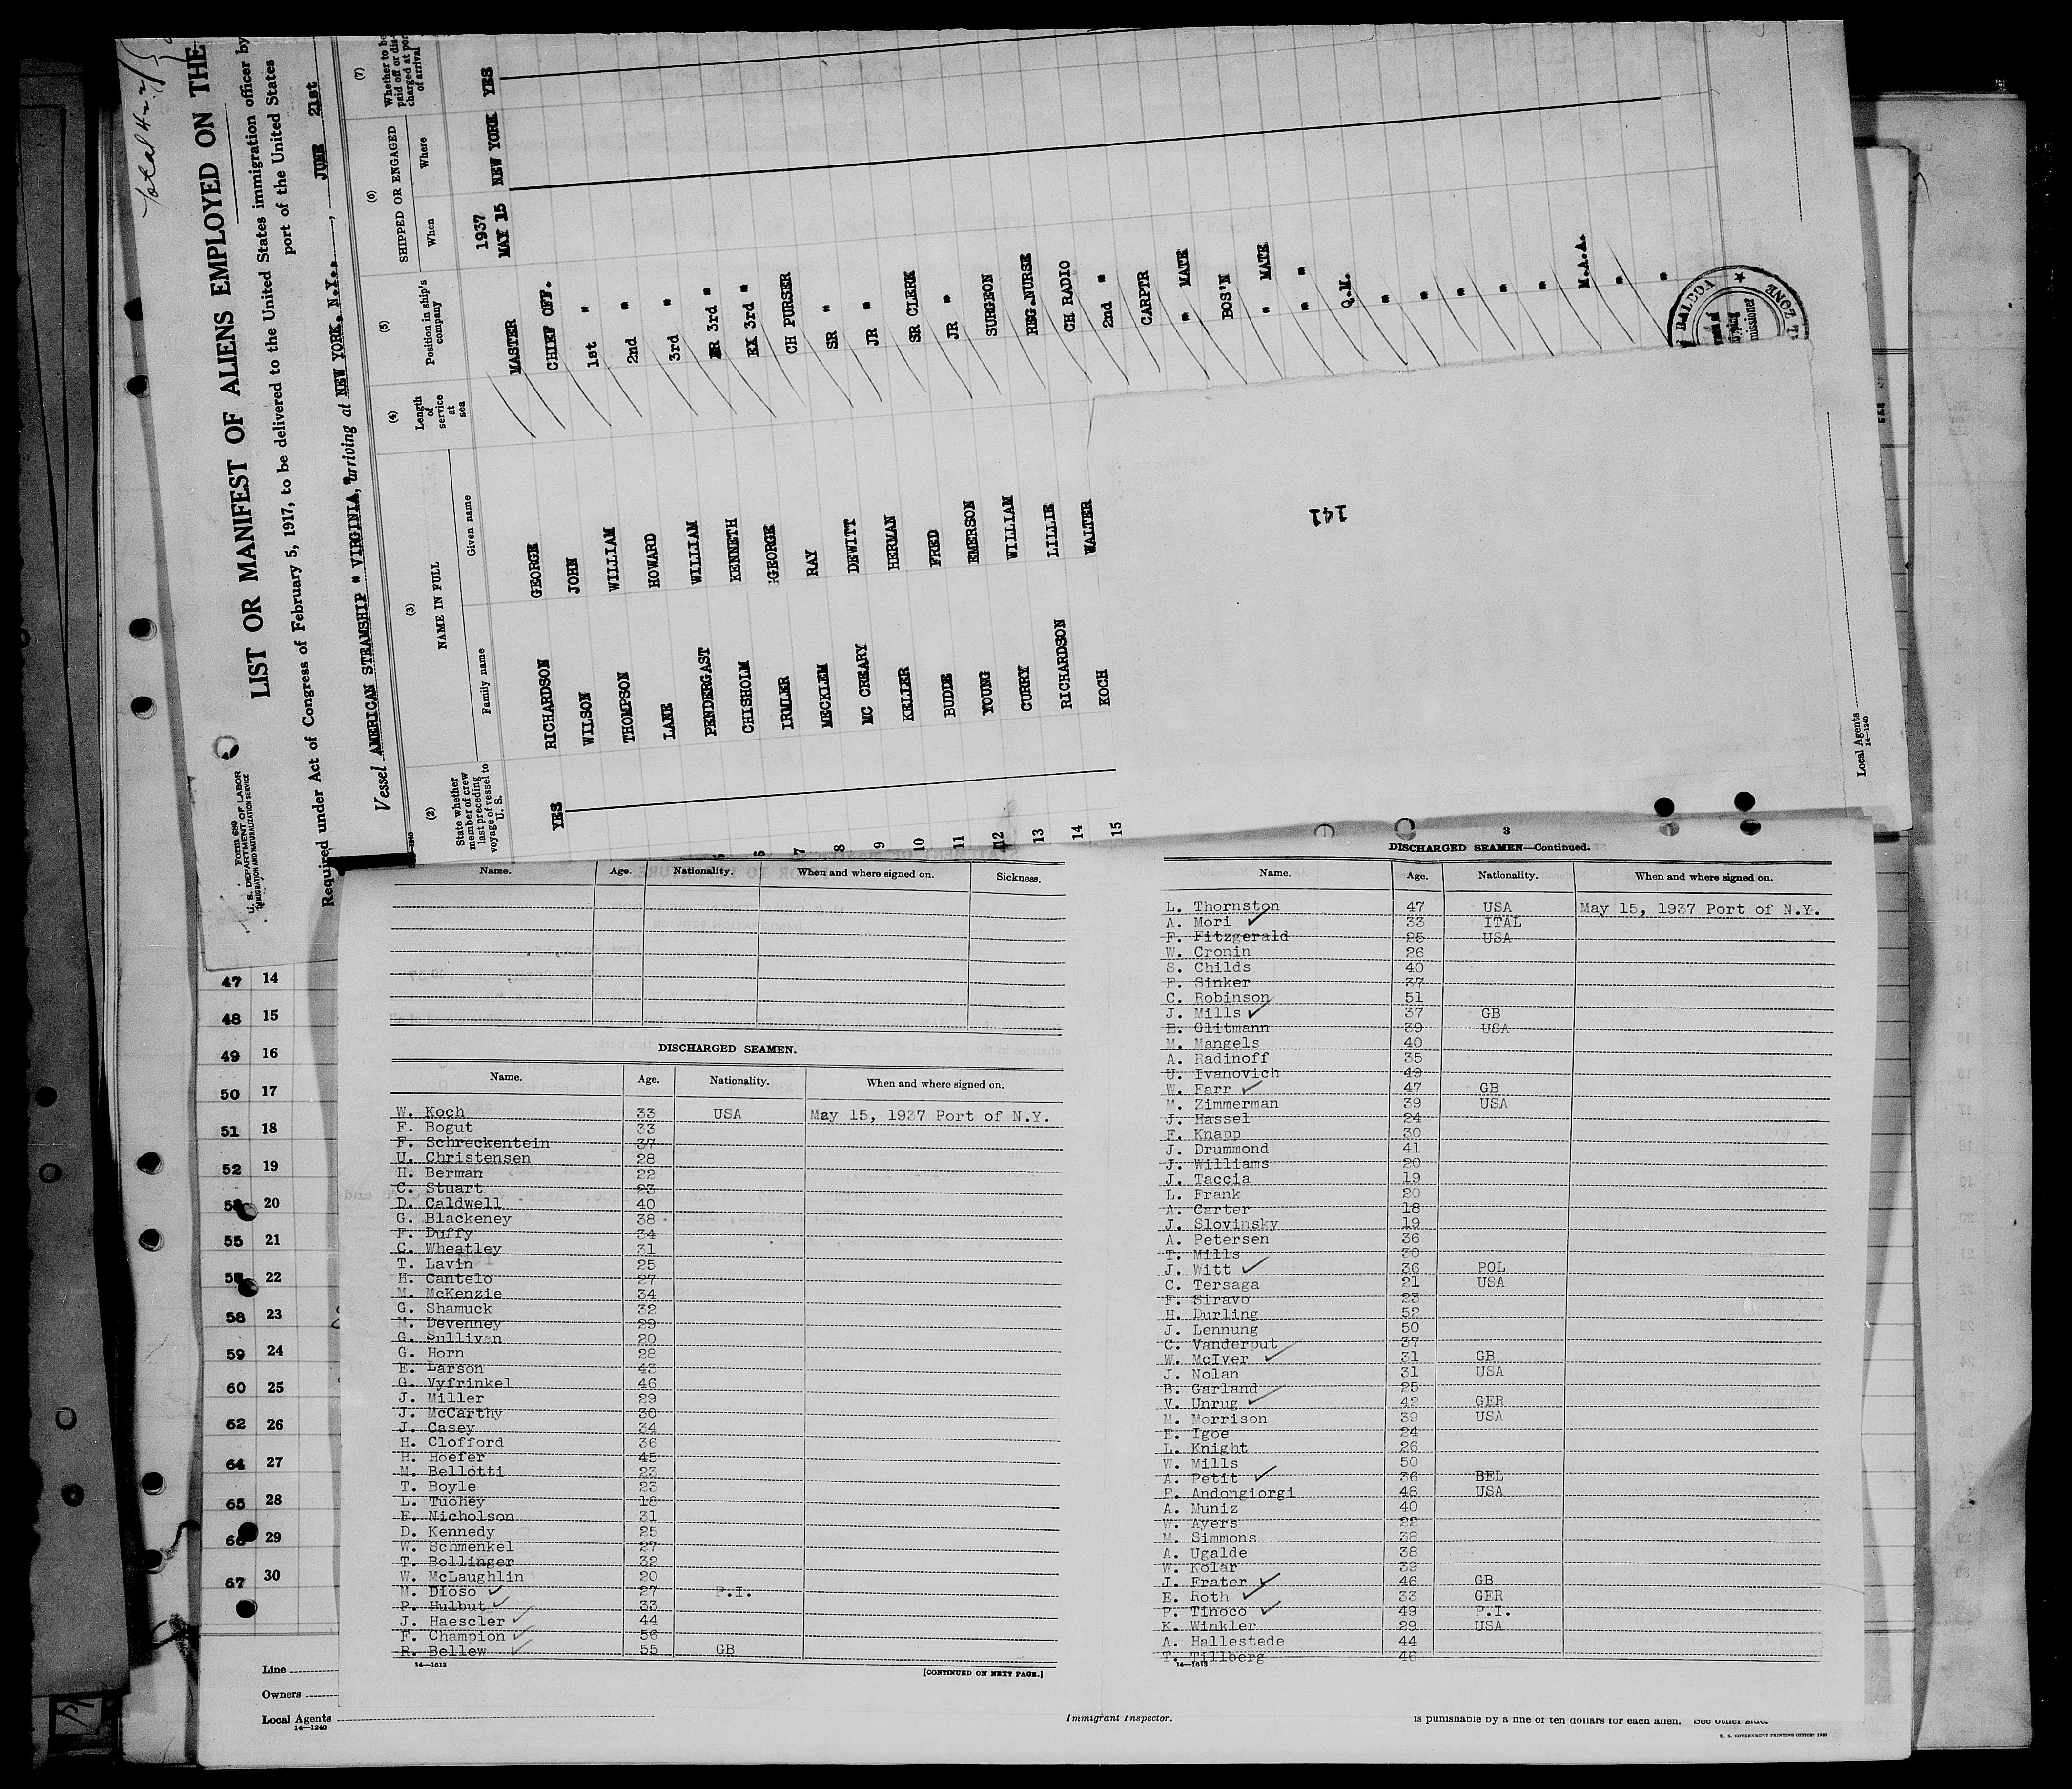 Total
LIST OR MANIFEST OF ALIENS EMPLOYED ON THE
Form 680
U. S. DEPARTMENT OF LABOR
IMMIGRATION AND NATURALIZATION SERVICE
Required under Act of Congress of February 5, 1917, to be delivered to the United States immigration officer by
port of the United States
Vessel AMERICAN STEAMSHIP " VIRGINIA, " arriving at NEW YORK, N.Y., JUNE 21st
(2) (3) (4) (5) (6) (7)
State whether member of crew last preceding voyage of vessel to U. S.
NAME IN FULL
Family name Given name
Length of service at sea
Position in ship's company
SHIPPED OR ENGAGED
When Where
Whether to be paid off or dis- charged at port of arrival
1937
YES RICHARDSON GEORGE MASTER MAY 15 NEW YORK YES
WILSON JOHN CHIEF OFF.
THOMPSON WILLIAM 1st "
LANE HOWARD 2nd "
PENDERGAST WILLIAM 3rd "
CHISHOLM KENNETH JR 3rd "
IRMLER GEORGE EX 3rd "
7 MECKLEM RAY CH PURSER
8 MC CREARY DEWITT SR "
9 KELLER HERMAN JR "
10 BUDDE FRED SR CLERK
11 YOUNG EMERSON JR "
12 CURRY WILLIAM SURGEON
13 RICHARDSON LILLIE REG.NURSE
14 KOCH WALTER CH RADIO
15 2nd "
CARPTR
" MATE
BOS'N
" MATE
" "
Q.M.
"
"
"
"
"
M.A.A.
"
"
BALBOA
ZONE
141
Local Agents
14—1240
47 14
48 15
49 16
50 17
51 18
52 19
20
55 21
22
58 23
59 24
60 25
62 26
64 27
65 28
66 29
67 30
Line
Owners
Local Agents
14—1240
Name. Age. Nationality. When and where signed on. Sickness.
DISCHARGED SEAMEN.
Name. Age. Nationality. When and where signed on.
W. Koch 33 USA May 15, 1937 Port of N.Y.
F. Bogut 33
F. Schreckentein 37
U. Christensen 28
H. Berman 22
C. Stuart 23
D. Caldwell 40
G. Blackeney 38
F. Duffy 34
C. Wheatley 31
T. Lavin 25
H. Cantelo 27
M. McKenzie 34
G. Shamuck 32
M. Devenney 29
G. Sullivan 20
G. Horn 28
E. Larson 43
G. Vyfrinkel 46
J. Miller 29
J. McCarthy 30
J. Casey 34
H. Clofford 36
H. Hoefer 45
M. Bellotti 23
T. Boyle 23
L. Tuohey 18
E. Nicholson 31
D. Kennedy 25
W. Schmenkel 27
T. Bollinger 32
W. McLaughlin 20
M. Dioso ✓ 27 P.I.
P. Hulbut ✓ 33
J. Haescler ✓ 44
F. Champion ✓ 56
R. Bellew ✓ 55 GB
14—1613
[CONTINUED ON NEXT PAGE.]
3
DISCHARGED SEAMEN—Continued.
Name. Age. Nationality. When and where signed on.
L. Thornston 47 USA May 15, 1937 Port of N.Y.
A. Mori ✓ 33 ITAL
F. Fitzgerald 25 USA
W. Cronin 26
S. Childs 40
P. Sinker 37
C. Robinson 51
J. Mills ✓ 37 GB
E. Glitmann 39 USA
M. Mangels 40
A. Radinoff 35
U. Ivanovich 49
W. Farr ✓ 47 GB
M. Zimmerman 39 USA
J. Hassel 24
F. Knapp 30
J. Drummond 41
J. Williams 20
J. Taccia 19
L. Frank 20
A. Carter 18
J. Slovinsky 19
A. Petersen 36
T. Mills 30
J. Witt ✓ 36 POL
C. Tersaga 21 USA
F. Siravo 23
H. Durling 52
J. Lennung 50
C. Vanderput 37
W. McIver ✓ 31 GB
J. Nolan 31 USA
B. Garland 25
V. Unrug ✓ 42 GER
M. Morrison 39 USA
E. Igoe 24
L. Knight 26
W. Mills 50
A. Petit ✓ 36 BEL
F. Andongiorgi 48 USA
A. Muniz 40
W. Ayers 22
M. Simmons 38
A. Ugalde 38
W. Kolar 39
J. Frater ✓ 46 GB
E. Roth ✓ 33 GER
P. Tinoco ✓ 49 P.I.
K. Winkler 29 USA
A. Hallestede 44
T. Tillberg 46
14—1613
Immigrant Inspector.
is punishable by a fine of ten dollars for each alien. See other side.
U. S. GOVERNMENT PRINTING OFFICE